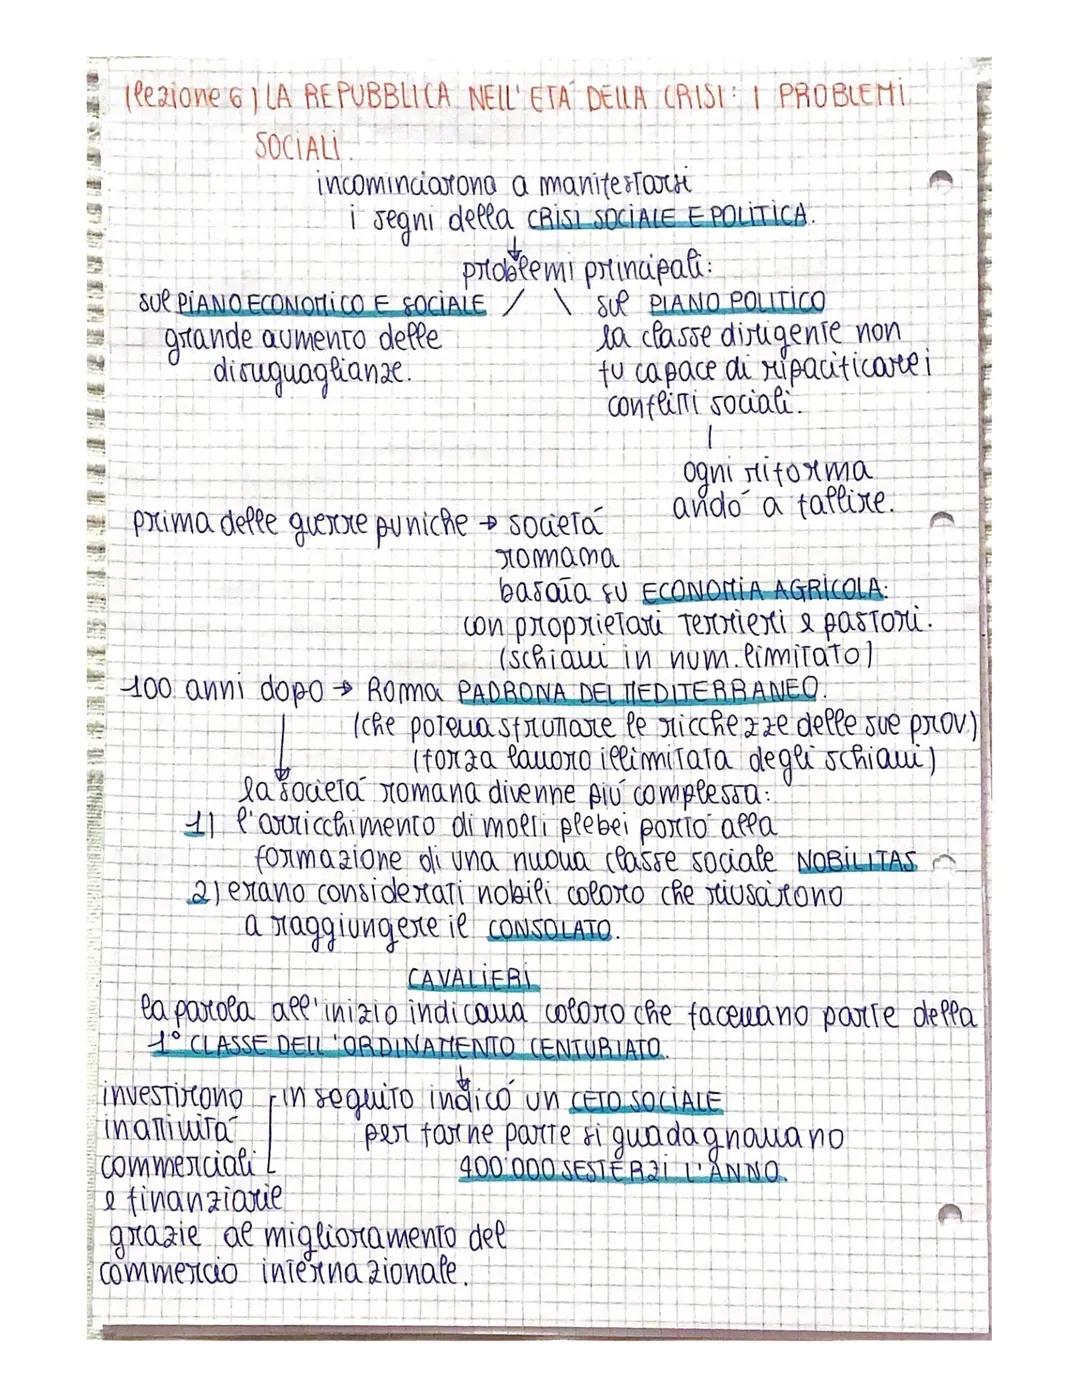 (lezione 6) LA REPUBBLICA NELL'ETÁ DELLA CRISI: I PROBLEMI
SOCIALI.
incominciarono a manifestarsi
i segni della CRISI SOCIALE E POLITICA.
problemi principali:
sul PIANO ECONOMICO E SOCIALE / \ sul PIANO POLITICO
grande aumento delle
disuguaglianze.
la classe dirigente non
fu capace di ripacificare i
conflitti sociali.
ogni riforma
andó a fallire.
prima delle guerre puniche → societá
romana
basata su ECONOMIA AGRICOLA:
con proprietari terrieri e pastori.
(schiavi in num. limitato)
100 anni dopo → Roma PADRONA DEL MEDITERRANEO.
(che poteva sfruttare le ricchezze delle sue prov.)
(forza lavoro illimitata degli schiavi)
la societá romana divenne piú complessa:
1) l'arricchimento di molti plebei portó alla
formazione di una nuova classe sociale NOBILITAS
2) erano considerati nobili coloro che riuscirono
a raggiungere il CONSOLATO.
CAVALIERI
la parola all'inizio indicava coloro che facevano parte della
1° CLASSE DELL'ORDINAMENTO CENTURIATO.
in seguito indicó un CETO SOCIALE
per farne parte si guadagnavano
400'000 SESTERZI L'ANNO.
investirono
in attivitá
commerciali
e finanziarie
grazie al miglioramento del
commercio internazionale.